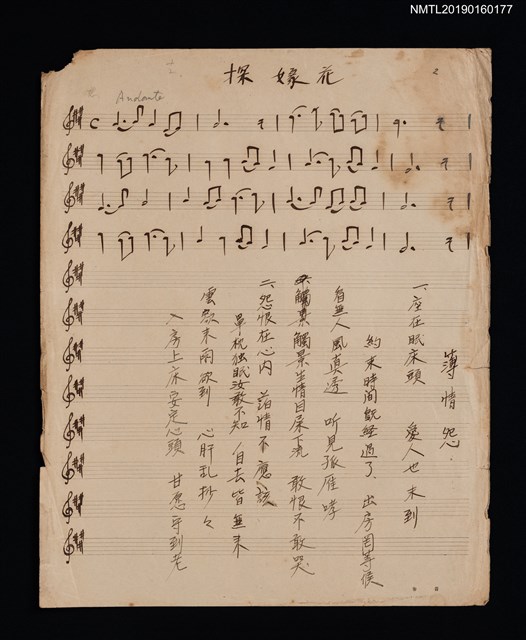 NMTL20190160177
採嫁花
2
Andante
C
薄情怨.
一、座在眠床頭 愛人也未到
約束時間既經過了. 出房間等候
看無人 風真透 听見孤雁哮
觸景觸景生情目屎流 敢恨不敢哭
二、怨恨在心內 薄情不應該
单枕独眠汝敢不知 自去皆無來
雲欲來雨欲到 心肝乱抄々
入房上床妄定心頭 甘愿守到老